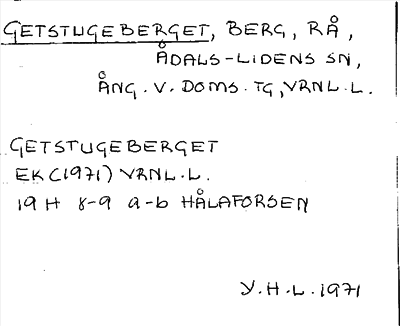 GETSTUGEBERGET, BERG, RÅ,
ÅDALS-LIDENS SN,
ÅNG. V. DOMS. TG, VRNL. L.
GETSTUGEBERGET
EK(1971) VRNL. L.
19 H 8-9 a-b HÅLAFORSEN
Y. H. L. 1971